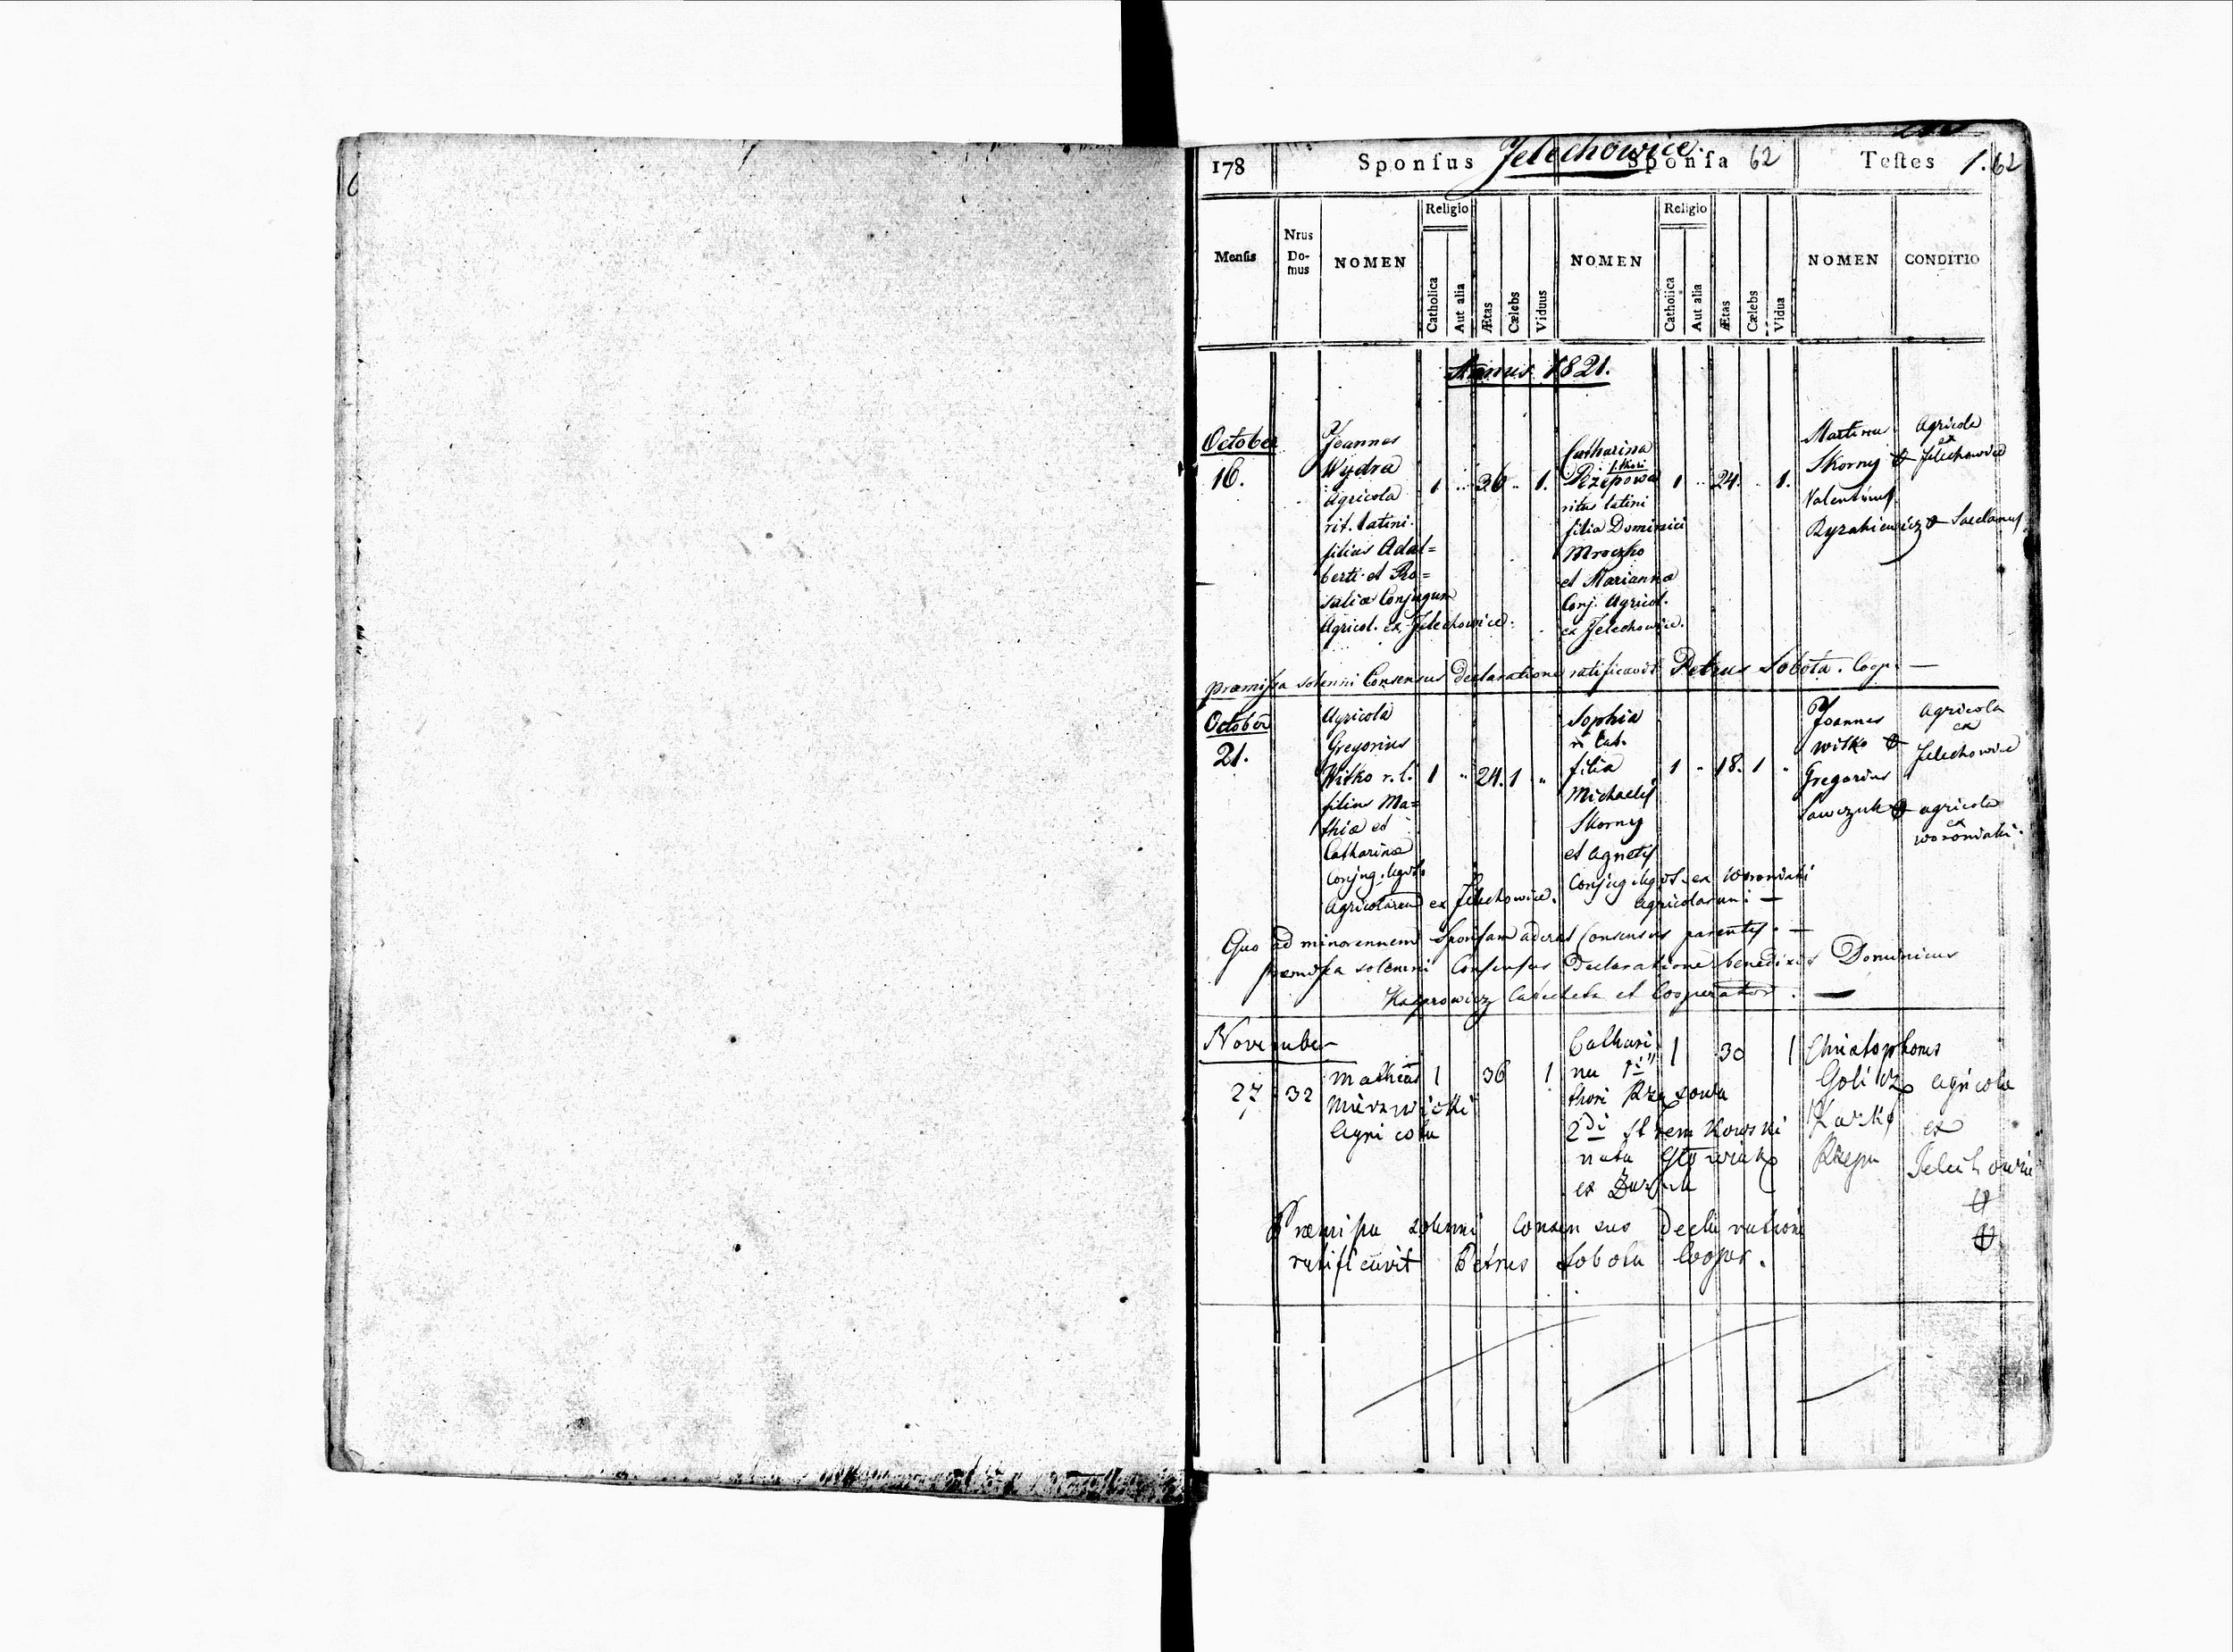 Jelechowice.
178 Sponſus Sponſa 62 Teſtes 1. 62
Religio Religio
Menſis Nrus Do- mus NOMEN Catholica Aut alia Ætas Cælebs Viduus NOMEN Catholica Aut alia Ætas Cælebs Vidua NOMEN CONDITIO
Annus 1821.
October
16.
Joannes
Wydra
Agricola
rit. latini.
filius Adal=
berti et Ro=
saliæ Conjugum
Agricol. ex Jelechowice.
1 .. 36 .. 1.
Catharina
Rzepowa
ritus latini
filia Dominici
Mroczko
et Mariannæ
Conj. Agricol.
ex Jelechowice.
1 .. 24. . 1.
Martinus
Skorny
Valentinus
Agricola
ex
Jelechowice
præmissa solenni Consensus Declaratione ratificavit Petrus Sobota. Coop. —
October
21.
Agricola
Gregorius
Witko r. l.
filius Ma=
thiæ et
Catharinæ
Conjug.
Agricolarum ex Jelechowice.
1 .. 24. 1 ..
Sophia
filia
Michaelis
Skorny
et Agnetis
Conjug. ex Woroniaki
Agricolarum. —
1 .. 18. 1 ..
Joannes
Witko
Gregorius
Sawczuk
Agricola
ex
Jelechowice
agricola
ex
Woroniaki.
Quo ad minorennem Sponsam aderat Consensus parentis. —
præmissa solenni Consensus Declaratione benedixit Dominicus
Kasprowicz Catecheta et Cooperator. —
November
27 32
Mathias
Agricola
1 36 1
Cathari
na 1i
thori
2di
nata
ex
1 30 1
Christophorus
agricola
ex
Præmissa solenni Consensus Declaratione
ratificavit Petrus Sobota Cooper.